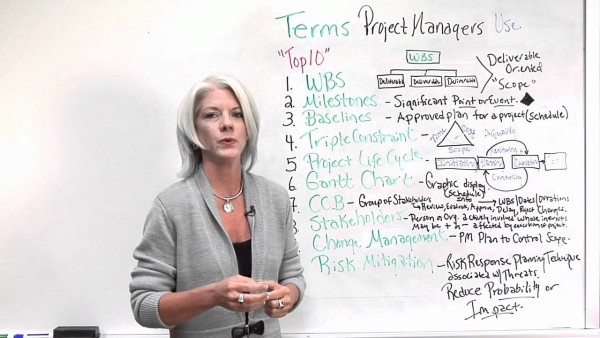 Terms Project Managers Use
"Top 10"
WBS
Deliverable Deliverable Deliverable
Deliverable
Oriented
"Scope"
1. WBS
2. Milestones - Significant Point or Event.
3. Baselines - Approved plan for a project (schedule)
4. Triple Constraint
Time
Scope
5. Project Life Cycle
6. Gantt Chart - Graphic display
(schedule) Info → WBS/Dates/Durations
7. CCB - Group of Stakeholders
Stakeholders - Person or Org. actively involved whose interests
May be + or - affected by execution of project.
Change Management - PM Plan to Control Scope.
Risk Mitigation - Risk Response Planning Technique
associated w/Threats.
Reduce Probability or
Impact.